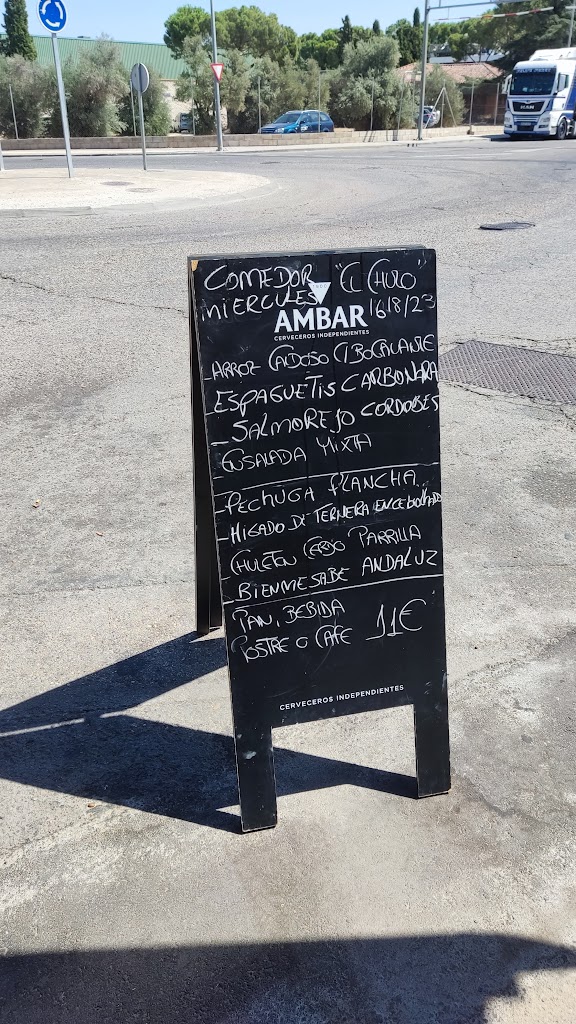 COMEDOR "EL CHULO"
MIERCULES 16/8/23
AMBAR
CERVECEROS INDEPENDIENTES
-ARROZ CALDOSO C/BOCALANTE
-ESPAGUETIS CARBONARA
-SALMOREJO CORDOBES
ENSALADA MIXTA
-PECHUGA PLANCHA
-HIGADO DE TERNERA ENCEBOLLADO
CHULETON CERDO PARRILLA
-BIENMESABE ANDALUZ
PAN, BEBIDA
POSTRE O CAFE 11€
CERVECEROS INDEPENDIENTES